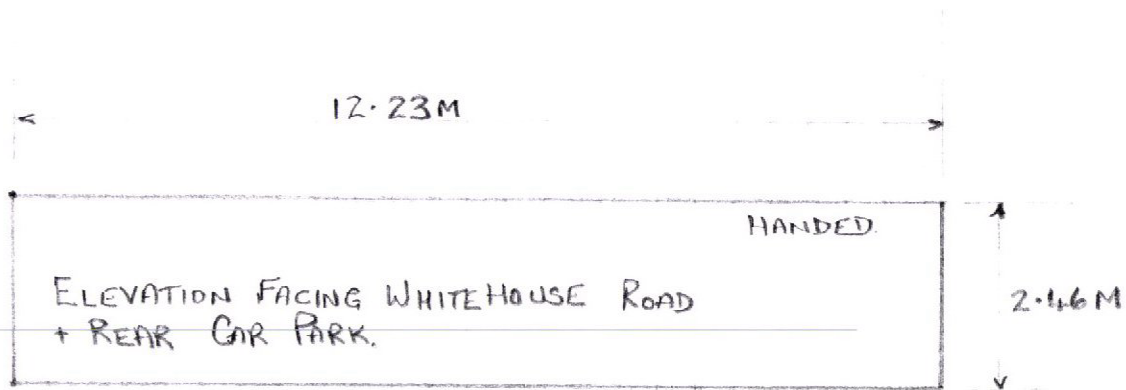 12.23M
HANDED.
ELEVATION FACING WHITEHOUSE ROAD
+ REAR CAR PARK.
2.46M